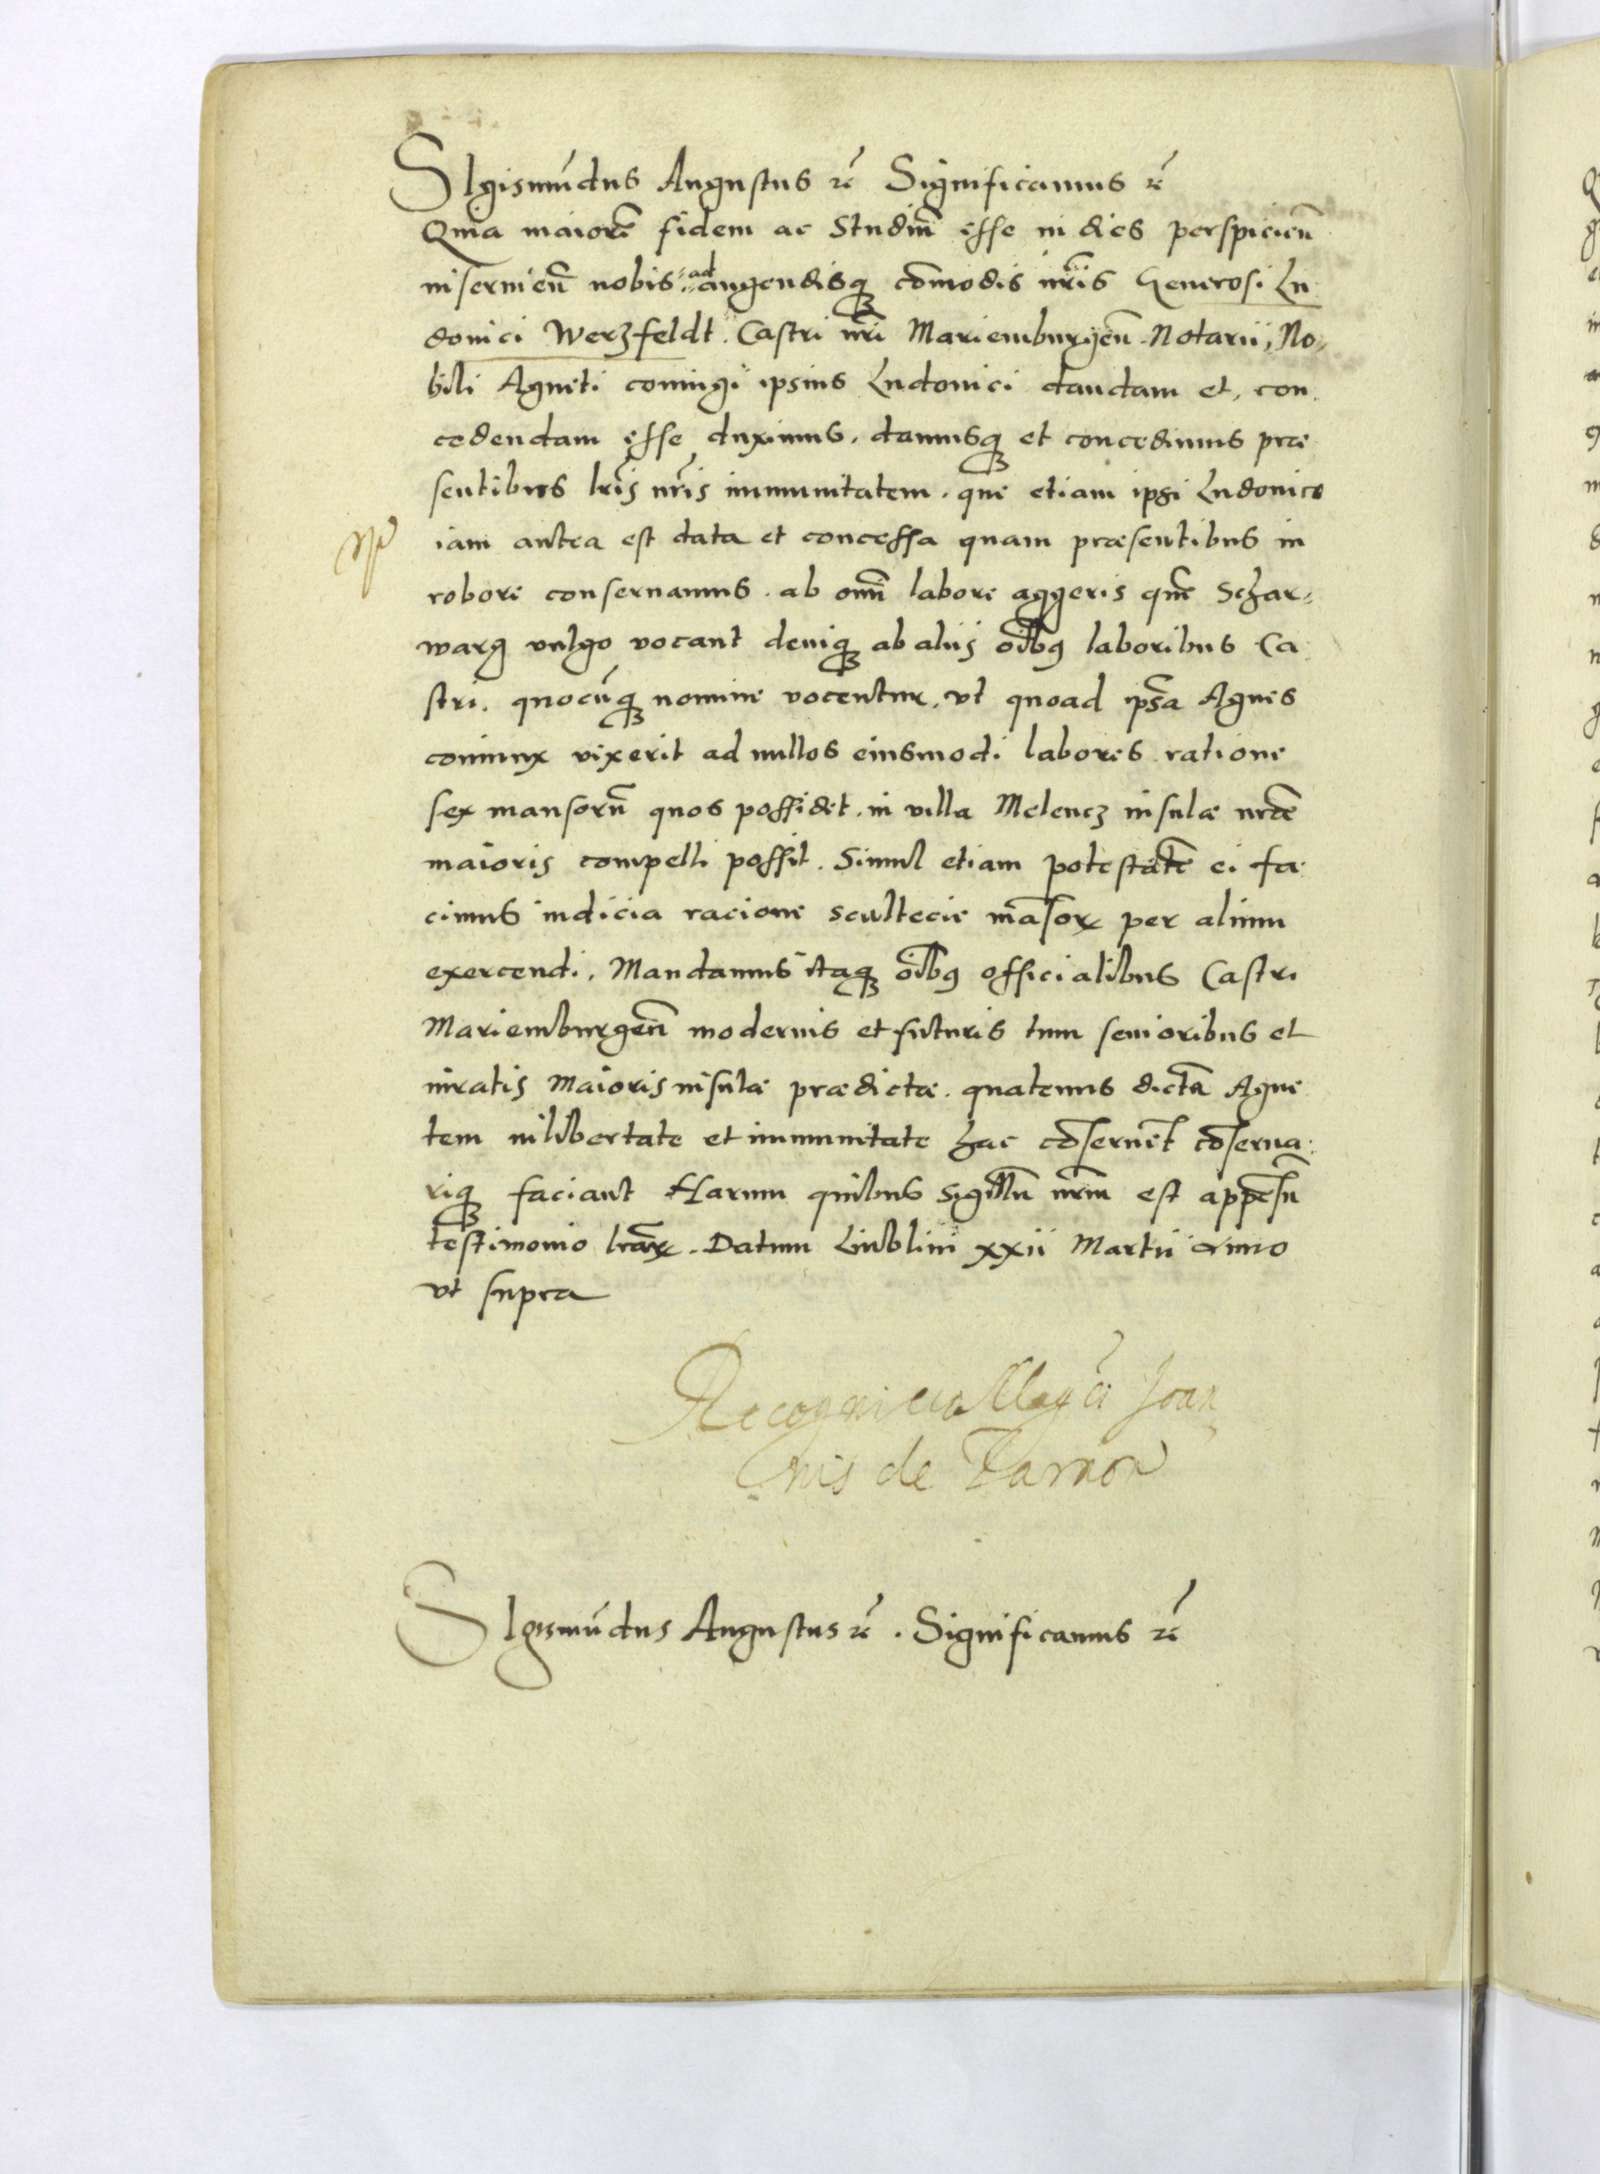 SIgismūdus Augustus rē Significamus rē
Quia maiorē fidem ac Studiū esse in dies perspicieñ
inservieñ nobis ad augendisq̨ cōmodis nrīs Generosi Lu
dovici Werzfeldt. Castri nrī Mariemburgeñ. Notarii, No,
bili Agneti coniugi ipsius Ludovici dandam et, con
cedendam esse duximus. damusq̨ et concedimus præ
sentibus lrīs nrīs immunitatem. que etiam ipsi Ludovico
iam antea est data et concessa quam præsentibus in
robore conservamus. ab omñi labore aggeris quē Schar,
warg vulgo vocant deniq̨ ab aliis oībus laboribus Ca
stri. quocūq̨ nomine vocentur, vt quoad ipsa Agnes
coniunx vixerit ad nullos eiusmodi labores ratione
sex mansorū quos possidet. in villa Melencz insulæ nrāe
maioris compelli possit. Simul etiam potestātē ei fa
cimus iudicia racione scultecie māsorꝝ per alium
exercendi. Mandamus itaq̨ oībus officialibus Castri
Mariemburgeñ modernis et futuris tum senioribus et
iuratis Maioris insulæ prædictæ. quatenus dictā Agne
tem in libertate et immunitate hac cōservēt cōserva:
riq̨ faciant Harum quibus sigillū nrm̄ est appēsū
testimonio lrāꝝ. Datum Liublini xxii Martii Anno
vt supra
Recognicio Magci Joan
nis de Tarnow
SIgismūdus Augustus rē. Significamus rē